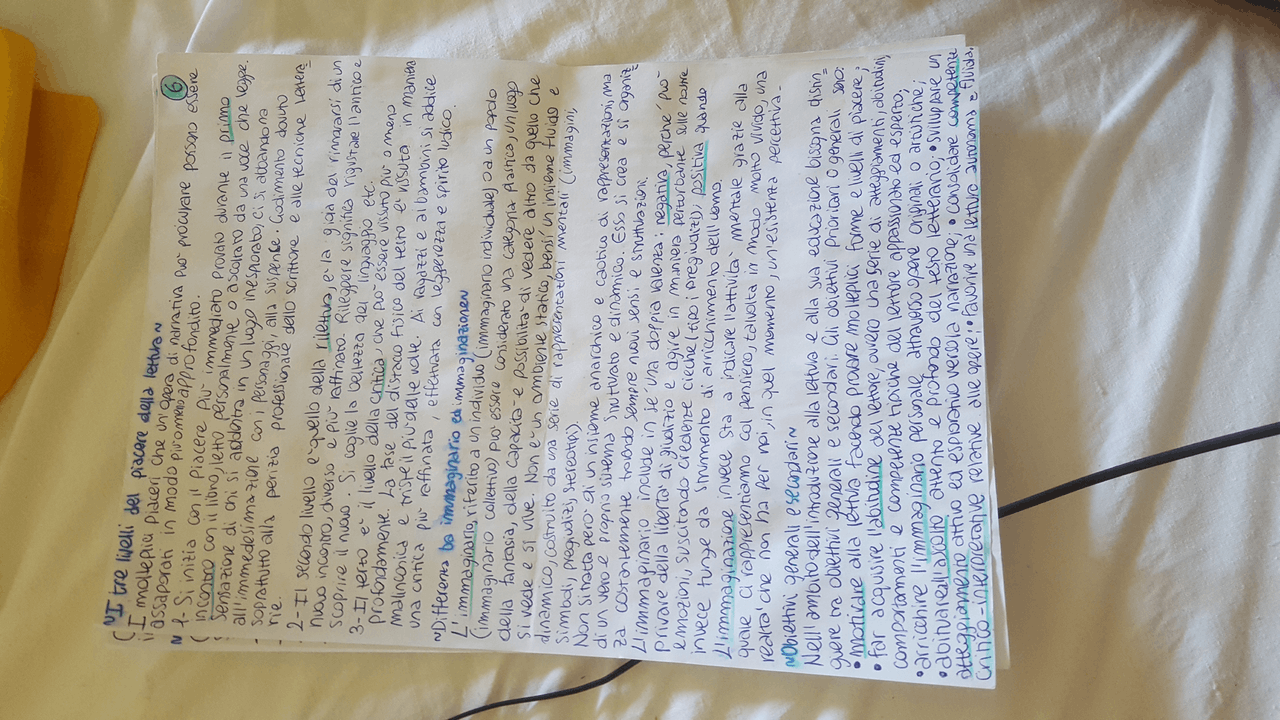 6
~I tre livelli del piacere della lettura~
I molteplici piaceri che un'opera di narrativa può procurare possono essere
assaporati in modo più o meno approfondito.
~ 1- Si inizia con il piacere più immediato provato durante il primo
incontro con il libro, letto personalmente o ascoltato da una voce che legge.
Sensazione di chi si addentra in un luogo inesplorato, ci si abbandona
all'immedesimazione con i personaggi, alla suspense. Godimento dovuto
soprattutto alla perizia professionale dello scrittore e alle tecniche lettera=
rie.
2- Il secondo livello è quello della rilettura, è la gioia del rinnovarsi di un
nuovo incontro, diverso e più raffinato. Rileggere significa rigustare l'antico e
scoprire il nuovo. Si coglie la bellezza del linguaggio etc.
3- Il terzo è il livello della critica che può essere vissuto più o meno
profondamente. La fase del distacco fisico del testo è vissuta in maniera
malinconica e triste il più delle volte. Ai ragazzi e ai bambini si addice
una critica più raffinata, effettuata con leggerezza e spirito ludico.
~Differenza tra immaginario ed immaginazione~
L'immaginario, riferito a un individuo (immaginario individuale) o a un popolo
(immaginario collettivo) può essere considerato una categoria plastica, un luogo
della fantasia, della capacità e possibilità di vedere altro da quello che
si vede e si vive. Non è un ambiente statico, bensì un insieme fluido e
dinamico, costruito da una serie di rappresentazioni mentali (immagini,
simboli, pregiudizi, stereotipi).
Non si tratta però di un insieme anarchico e caotico di rappresentazioni, ma
di un vero e proprio sistema strutturato e dinamico. Esso si crea e si organiz=
za costantemente traendo sempre nuovi sensi e strutturazioni.
L'immaginario include in sé una doppia valenza: negativa perché può
privare della libertà di giudizio e agire in maniera perturbante sulle nostre
emozioni, suscitando credenze cieche (tipo i pregiudizi), positiva quando
invece funge da strumento di arricchimento dell'uomo.
L'immaginazione invece sta a indicare l'attività mentale grazie alla
quale ci rappresentiamo col pensiero, talvolta in modo molto vivido, una
realtà che non ha per noi, in quel momento, un'esistenza percettiva.
~Obiettivi generali e secondari~
Nell'ambito dell'introduzione alla lettura e alla sua educazione bisogna distin=
guere tra obiettivi generali e secondari. Gli obiettivi prioritari o generali sono:
• motivare alla lettura facendo provare molteplici forme e livelli di piacere;
• far acquisire l'abitudine del lettore ovvero una serie di atteggiamenti, abitudini,
comportamenti e competenze tipiche del lettore appassionato ed esperto;
• arricchire l'immaginario personale attraverso opere originali o artistiche;
• abituare all'ascolto attento e profondo del testo letterario; • sviluppare un
atteggiamento attivo ed esplorativo verso la narrazione; • consolidare competenze
critico-interpretative relative alle opere; • favorire una lettura autonoma e fluida.